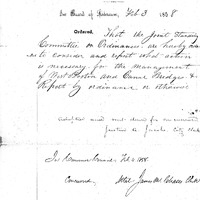 In Board of Aldermen, Feb 3 1858
Ordered, That the Joint Standing
Committee on Ordinances are hereby
to consider and report what action
is necessary for the management
of West Boston and Canal Bridges &
Report by ordinance or otherwise
sent down for concurrence
City Clerk
In Common Council, Feb 4 1858.
Concurred. Attest James M. Chase, Clerk